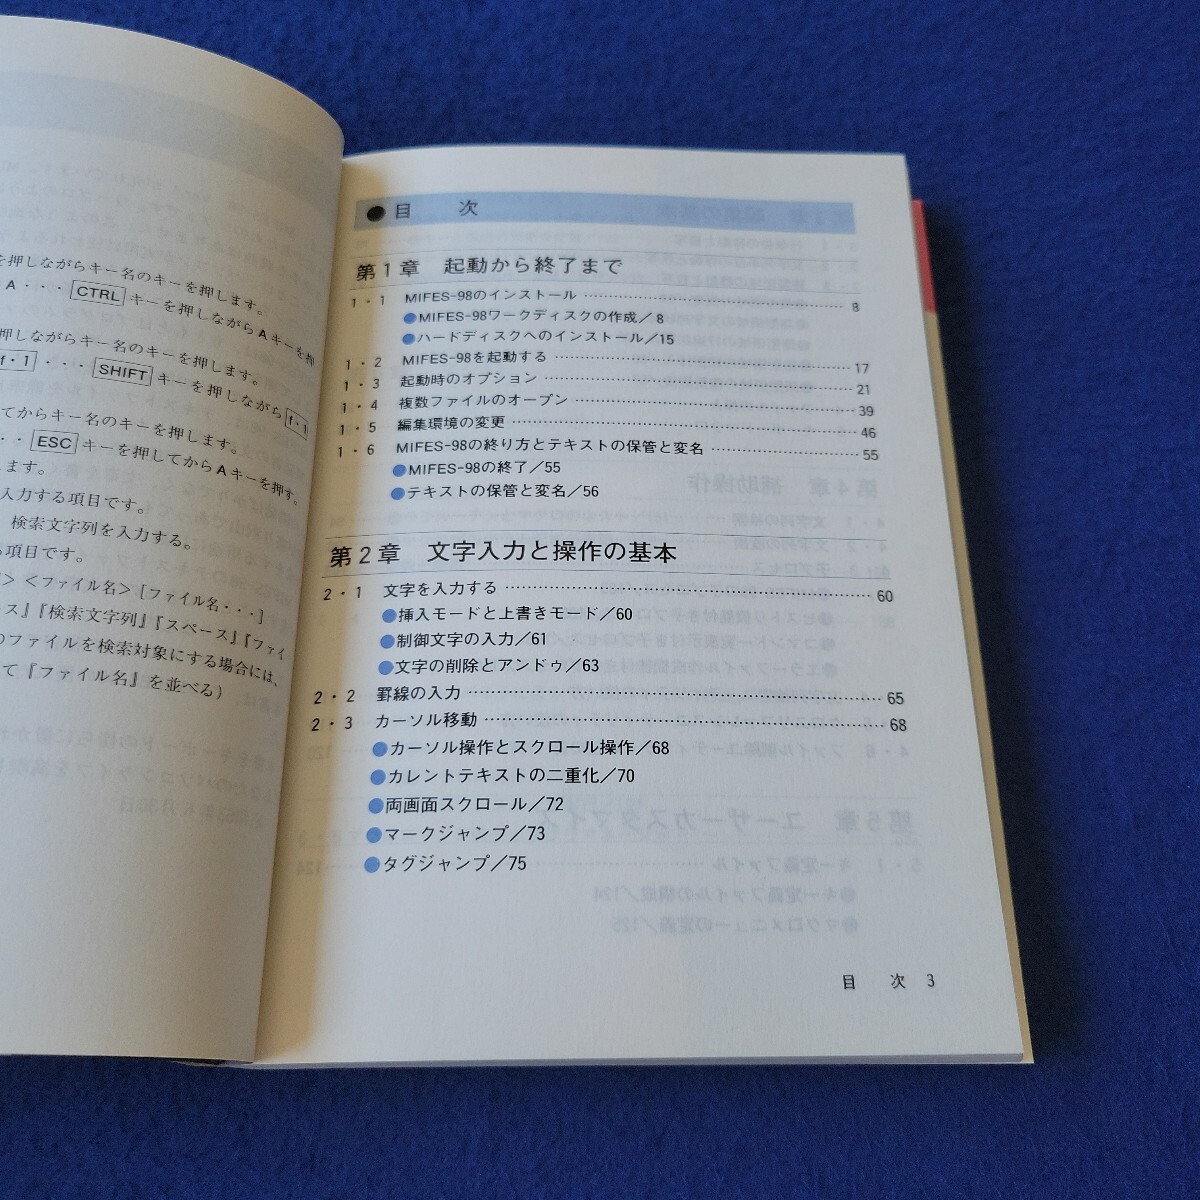 を押しながらキー名のキーを押します。
A・・・CTRLキーを押しながらAキーを押
押しながらキー名のキーを押します。
f・1・・・SHIFTキーを押しながらf・1
てからキー名のキーを押します。
・・ESCキーを押してからAキーを押す。
します。
入力する項目です。
検索文字列を入力する。
る項目です。
> <ファイル名> [ファイル名・・・]
ース』『検索文字列』『スペース』『ファイ
のファイルを検索対象にする場合には、
て『ファイル名』を並べる)
●目　次
第1章　起動から終了まで
1・1　MIFES-98のインストール……8
●MIFES-98ワークディスクの作成／8
●ハードディスクへのインストール／15
1・2　MIFES-98を起動する……17
1・3　起動時のオプション……21
1・4　複数ファイルのオープン……39
1・5　編集環境の変更……46
1・6　MIFES-98の終り方とテキストの保管と変名……55
●MIFES-98の終了／55
●テキストの保管と変名／56
第2章　文字入力と操作の基本
2・1　文字を入力する……60
●挿入モードと上書きモード／60
●制御文字の入力／61
●文字の削除とアンドゥ／63
2・2　罫線の入力……65
2・3　カーソル移動……68
●カーソル操作とスクロール操作／68
●カレントテキストの二重化／70
●両画面スクロール／72
●マークジャンプ／73
●タグジャンプ／75
目　次　3